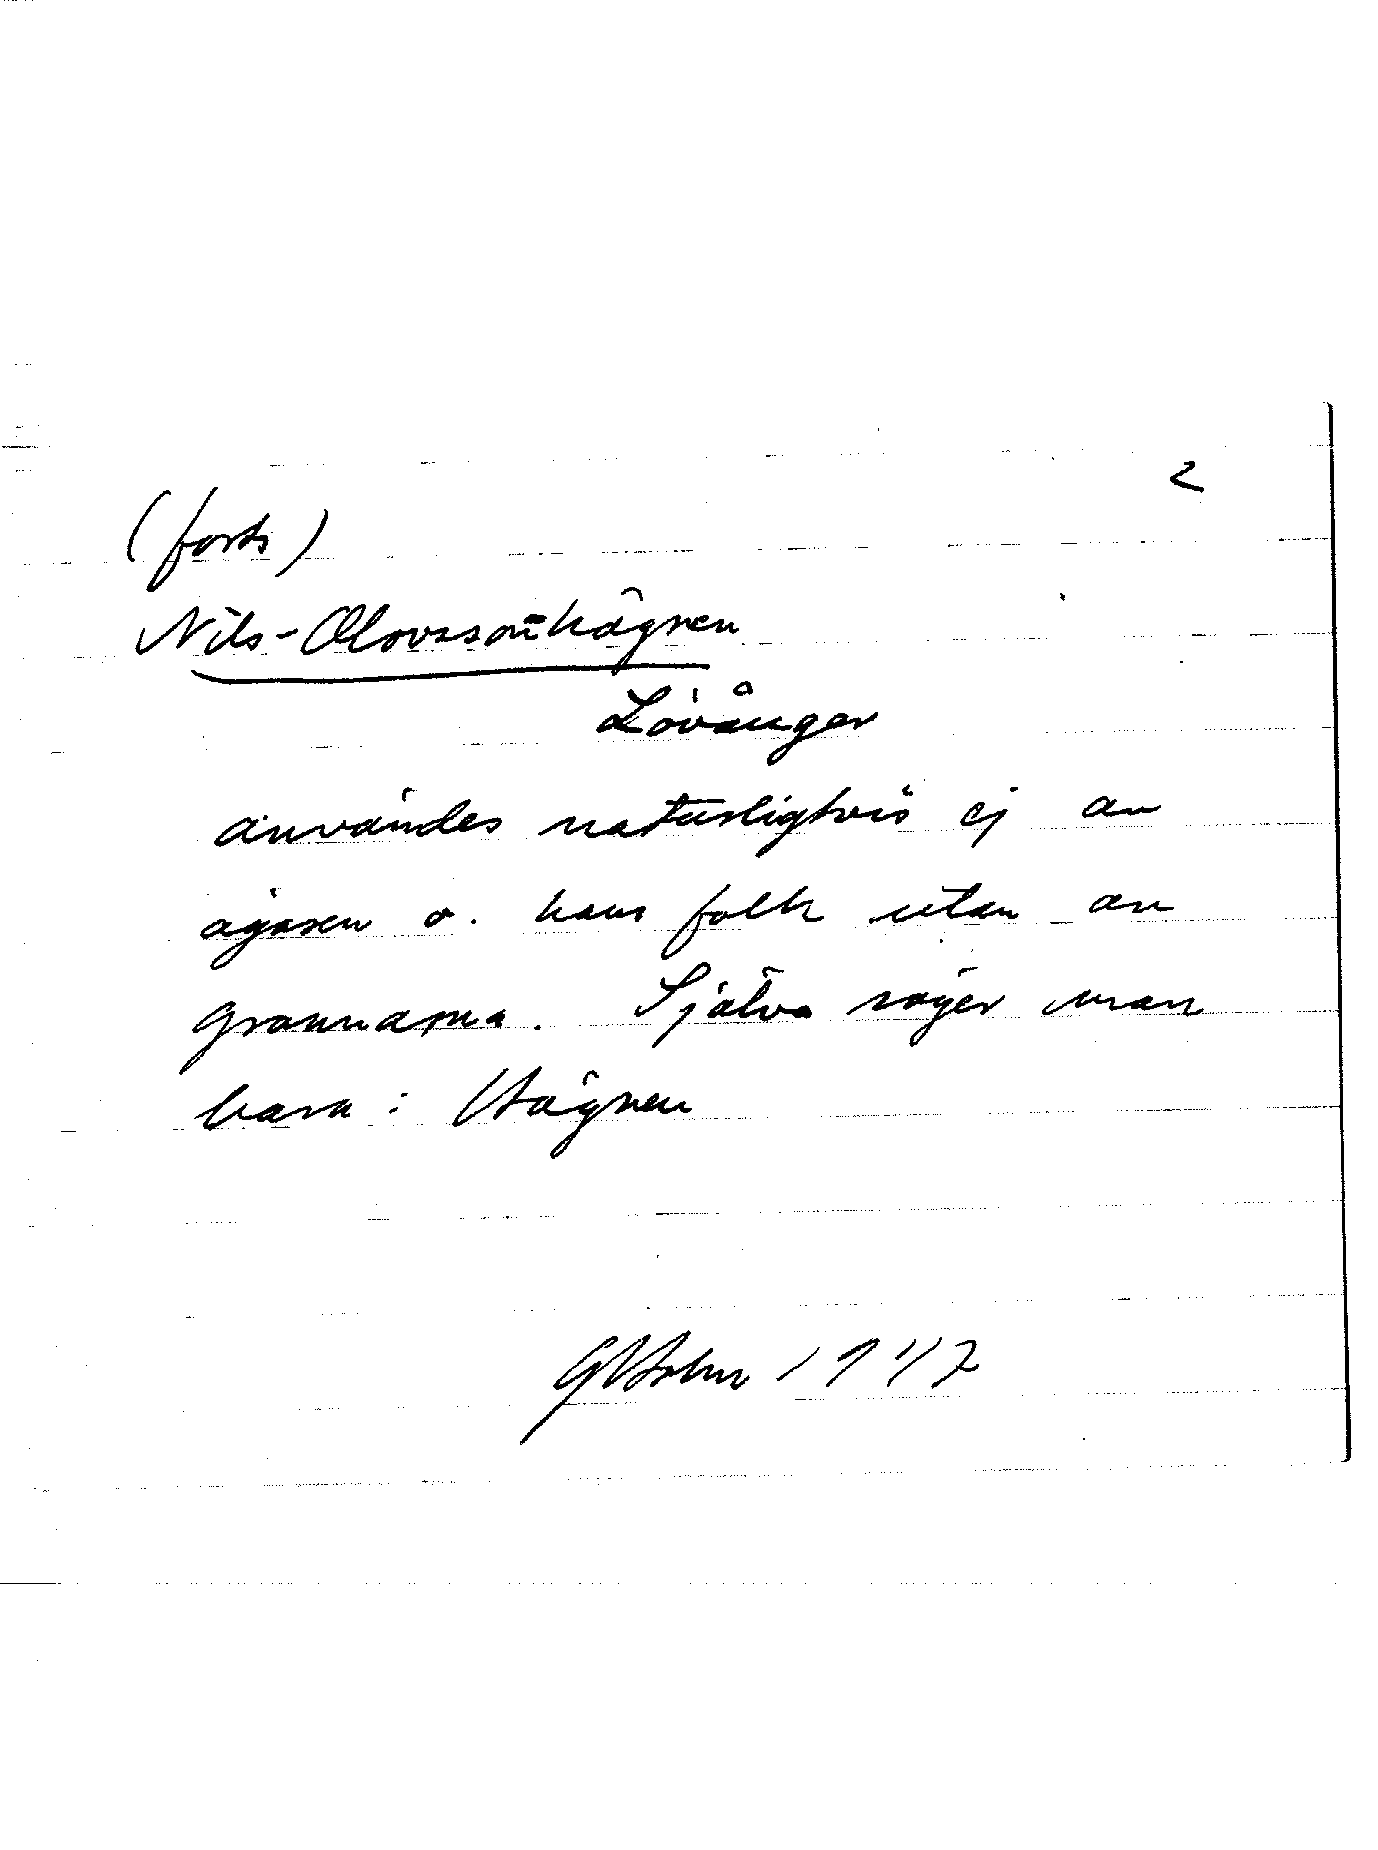 2
(forts)
Nils-Olovsson-hägnen
Lövånger
användes naturligtvis ej av
ägaren o. hans folk utan av
grannarna. Själva säger man
bara: Hägnen
GHolm 1947